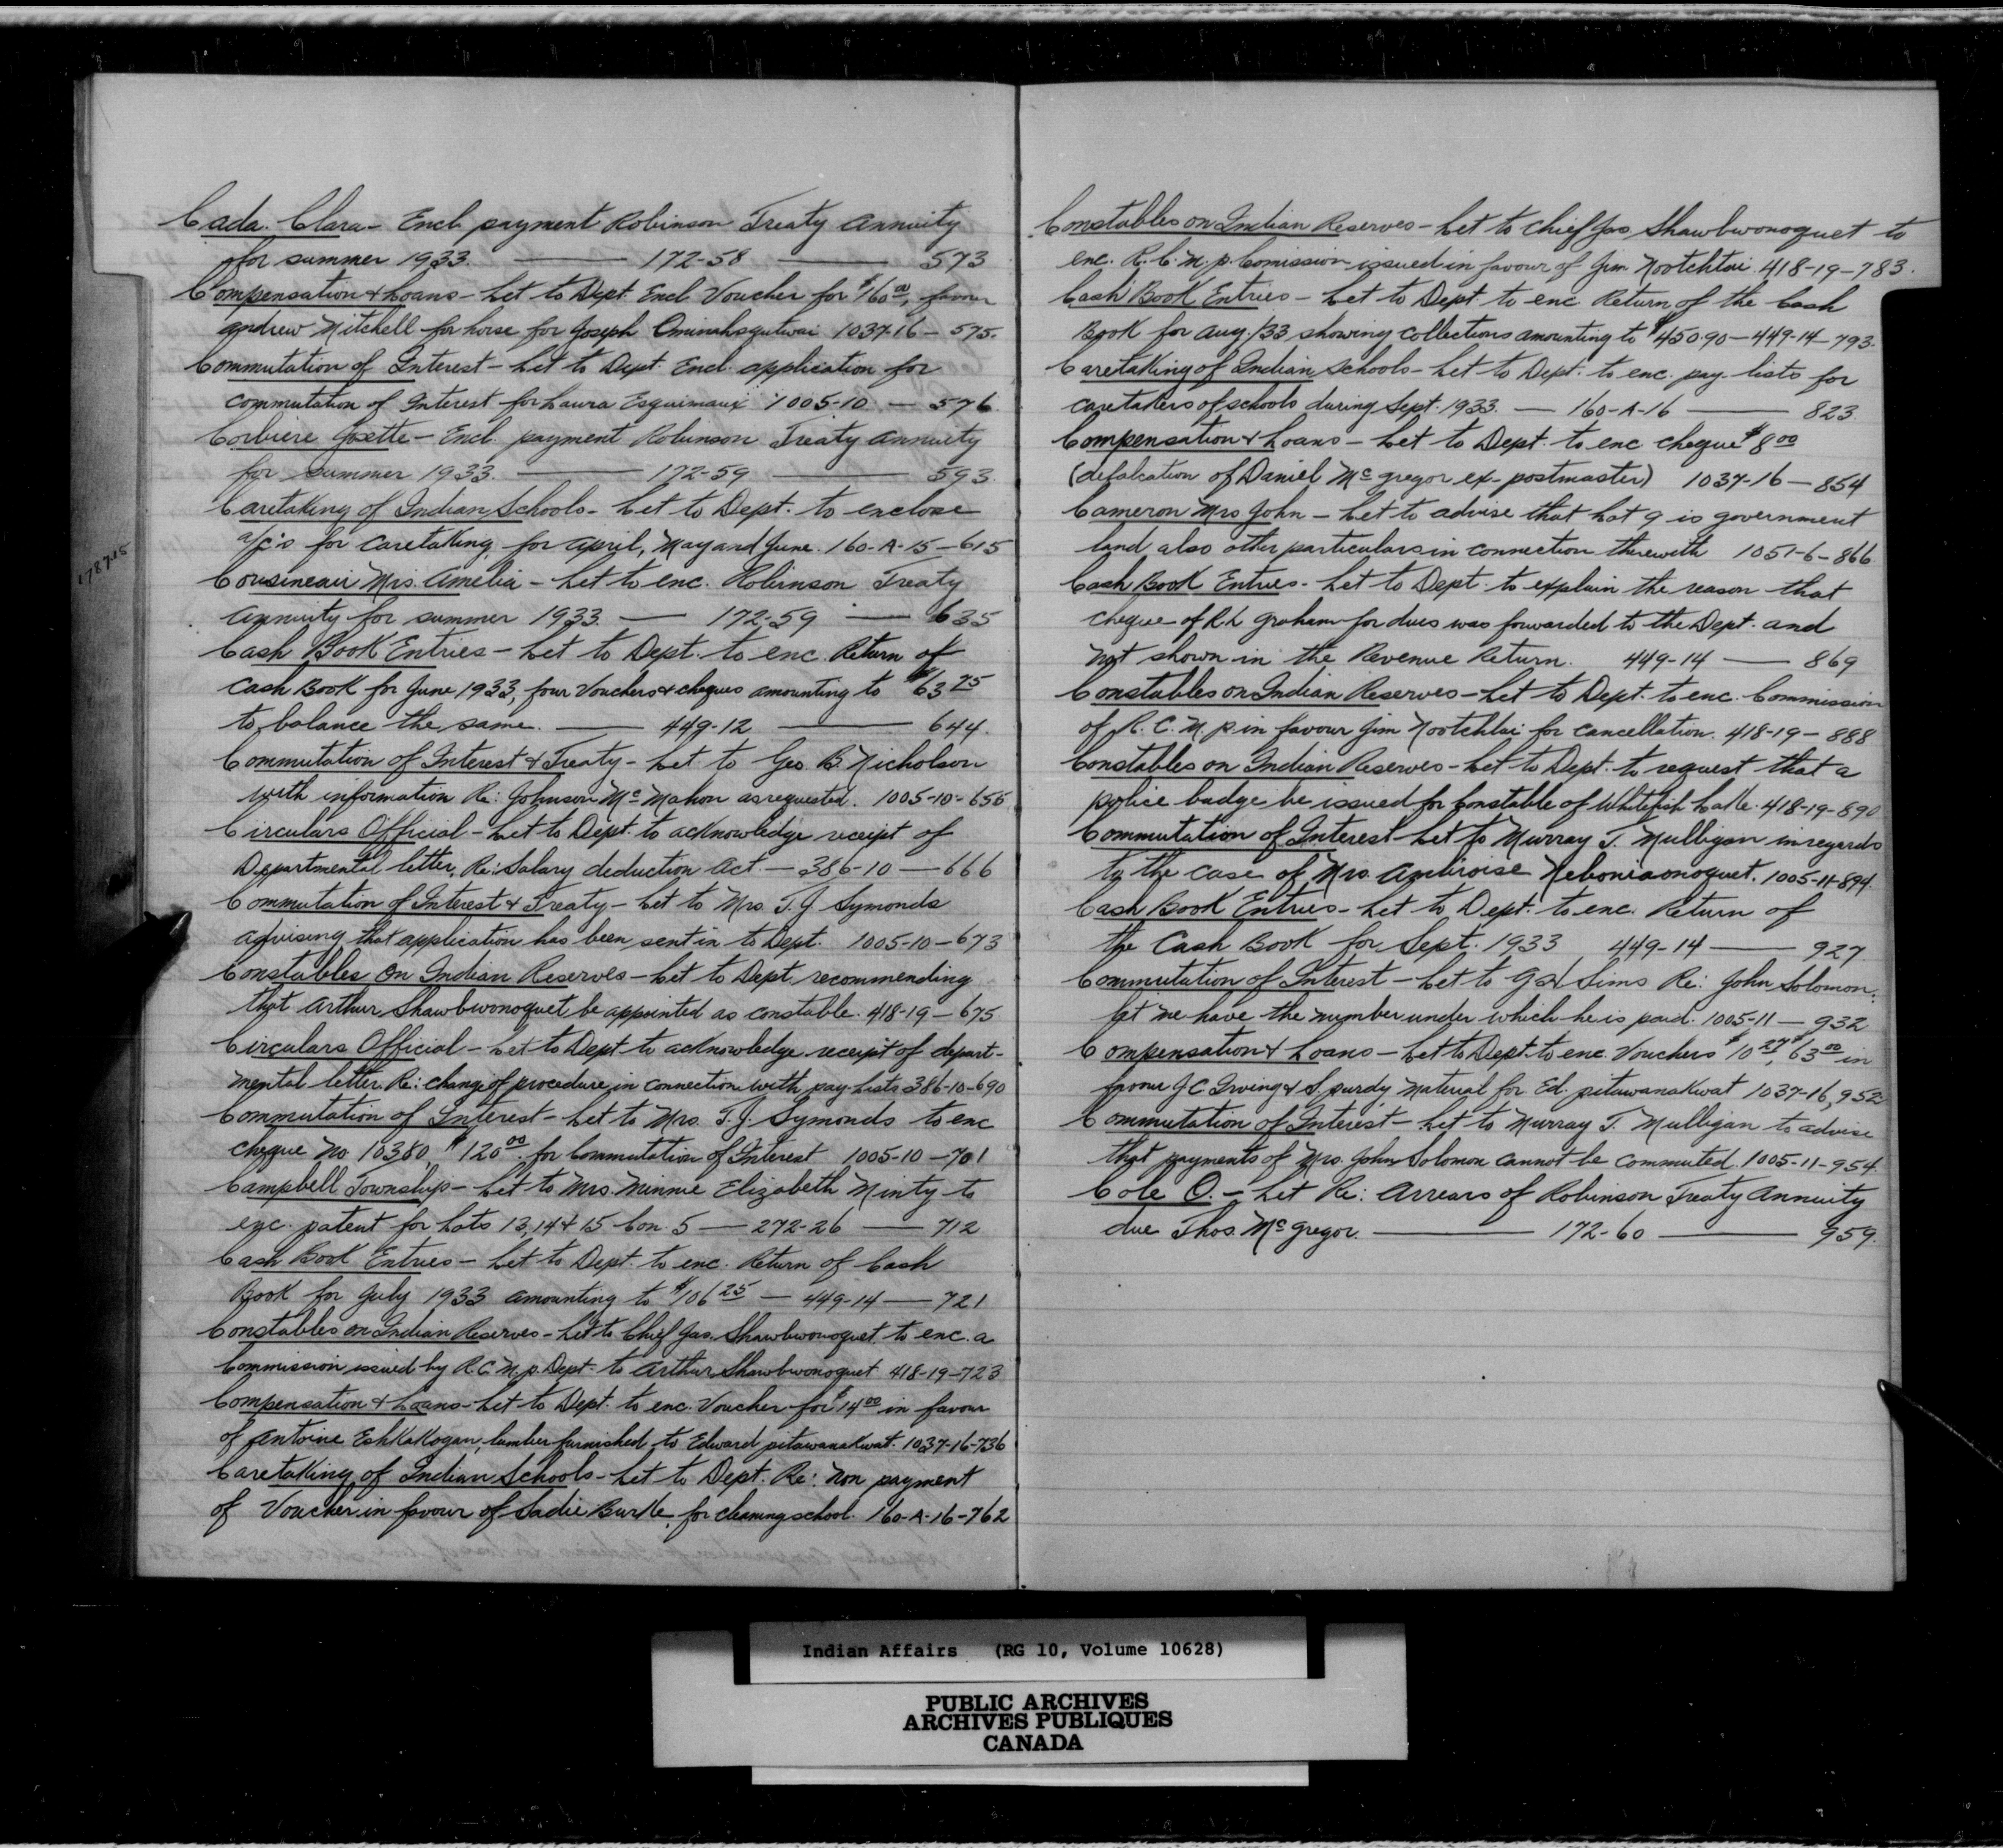 Cada. Clara - Encl. payment Robinson Treaty Annuity
for summer 1933. — 172-58 — 573
Compensation & Loans - Let to Dept. Encl Voucher for $16.00, favour
Andrew Mitchell for horse for Joseph 1037-16 - 575.
Commutation of Interest - Let to Dept. Encl. application for
commutation of Interest for Laura Esquimaux 1005-10 - 576
Corbiere Josette - Encl. payment Robinson Treaty Annuity
for summer 1933. — 172-59 — 593.
Caretaking of Indian Schools - Let to Dept. to enclose
a/c's for caretaking, for April, May and June. 160-A-15-615
Cousineau Mrs. Amelia - Let to enc. Robinson Treaty
Annuity for summer 1933. — 172-59 — 635
Cash Book Entries - Let to Dept. to enc. Return of
Cash Book for June 1933, four Vouchers & cheques amounting to $63 75
to balance the same. — 449-12 — 644.
Commutation of Interest & Treaty - Let to Geo. B. Nicholson
with information Re: Johnson McMahon as requested. 1005-10-656
Circulars Official - Let to Dept. to acknowledge receipt of
Departmental letter, Re: Salary deduction Act - 386-10 - 666
Commutation of Interest & Treaty - Let to Mrs. T.J. Symonds
advising that application has been sent in to Dept. 1005-10-673
Constables on Indian Reserves - Let to Dept. recommending
that Arthur Shawbwonoquet be appointed as constable. 418-19-675
Circulars Official - Let to Dept to acknowledge receipt of depart-
mental letter. Re: change of procedure in connection with pay-lists 386-10-690
Commutation of Interest - Let to Mrs. T.J. Symonds to enc
cheque No 10380, $120 00 for Commutation of Interest 1005-10-701
Campbell Township - Let to Mrs. Minnie Elizabeth Minty to
enc. patent for Lots 13, 14 & 15 Con. 5 - 272-26 - 712
Cash Book Entries - Let to Dept. to enc. Return of Cash
Book for July 1933 amounting to $106 25 - 449-14 - 721
Constables on Indian Reserves - Let to Chief Jas. Shawbwonoquet to enc. a
Commission issued by R.C.M.P. Dept. to Arthur Shawbwonoquet 418-19-723
Compensation & Loans - Let to Dept. to enc. Voucher for $14 00 in favour
of Antoine Eshkakogan, lumber furnished to Edward Pitawanakwat. 1037-16-736
Caretaking of Indian Schools - Let to Dept. Re: Non payment
of Voucher in favour of Sadie Burke, for cleaning school. 160-A-16-762
178715
Constables on Indian Reserves - Let to Chief Jas Shawbwonoquet to
enc. R.C.M.P. Comission issued in favour of Jim Nootchtai 418-19-783.
Cash Book Entries - Let to Dept. to enc Return of the Cash
Book for Aug./33 showing collections amounting to $450.90 - 449-14-793.
Caretaking of Indian Schools - Let to Dept. to enc. pay-lists for
caretakers of schools during Sept. 1933. - 160-A-16 — 823.
Compensation & Loans - Let to Dept. to enc cheque $8 00
(defalcation of Daniel McGregor ex-postmaster) 1037-16 - 854
Cameron Mrs John - Let to advise that Lot 9 is government
land also other particulars in connection therewith 1051-6-866
Cash Book Entries - Let to Dept. to explain the reason that
cheque of R.L Graham for dues was forwarded to the Dept. and
not shown in the Revenue Return. 449-14 — 869
Constables on Indian Reserves - Let to Dept. to enc. Commission
of R.C.M.P. in favour Jim Nootchtai for cancellation. 418-19-888
Constables on Indian Reserves - Let to Dept. to request that a
police badge be issued for Constable of Whitefish Lake. 418-19-890
Commutation of Interest - Let to Murray T. Mulligan in regards
to the case of Mrs. Ambroise Nebonionoquet. 1005-11-894.
Cash Book Entries - Let to Dept. to enc. Return of
the Cash Book for Sept. 1933 449-14 — 927
Commutation of Interest - Let to Sims Re: John Solomon:
let me have the number under which he is paid. 1005-11 - 932
Compensation & Loans - Let to Dept. to enc. Vouchers $10 27, $63 00 in
favour J.C. Irving & S. Purdy material for Ed. Pitawanakwat 1037-16, 952
Commutation of Interest - Let to Murray T. Mulligan to advise
that payments of Mrs. John Solomon cannot be commuted. 1005-11-954.
Cole O. - Let Re: Arrears of Robinson Treaty Annuity
due Thos. McGregor. — 172-60 — 959.
Indian Affairs (RG 10, Volume 10628)
PUBLIC ARCHIVES
ARCHIVES PUBLIQUES
CANADA